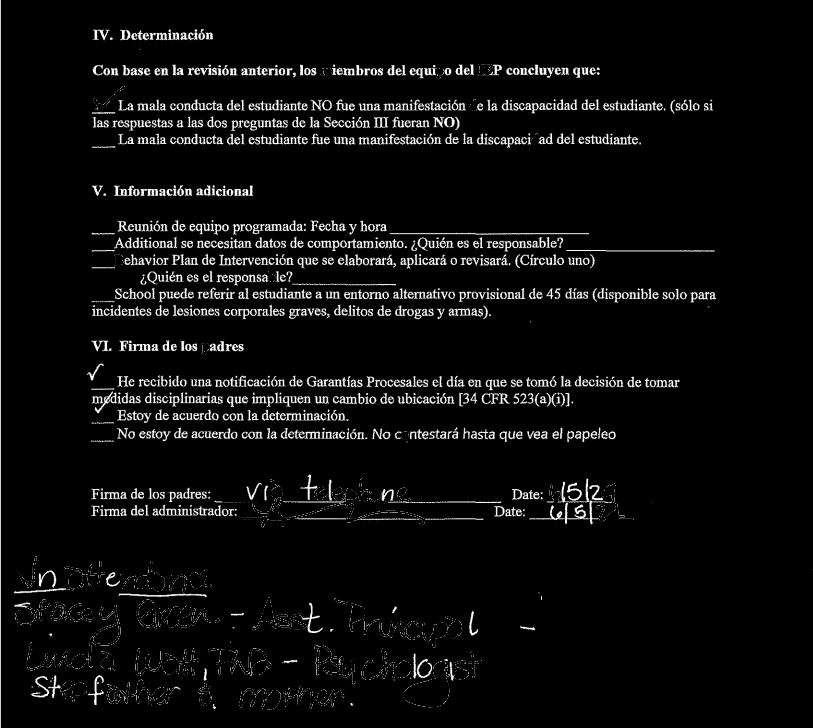 IV. Determinación
Con base en la revisión anterior, los miembros del equipo del IEP concluyen que:
La mala conducta del estudiante NO fue una manifestación de la discapacidad del estudiante. (sólo si
las respuestas a las dos preguntas de la Sección III fueran NO)
___ La mala conducta del estudiante fue una manifestación de la discapacidad del estudiante.
V. Información adicional
___ Reunión de equipo programada: Fecha y hora ___
___Additional se necesitan datos de comportamiento. ¿Quién es el responsable? ___
___Behavior Plan de Intervención que se elaborará, aplicará o revisará. (Círculo uno)
¿Quién es el responsable?___
___School puede referir al estudiante a un entorno alternativo provisional de 45 días (disponible solo para
incidentes de lesiones corporales graves, delitos de drogas y armas).
VI. Firma de los padres
✓ He recibido una notificación de Garantías Procesales el día en que se tomó la decisión de tomar
medidas disciplinarias que impliquen un cambio de ubicación [34 CFR 523(a)(i)].
✓ Estoy de acuerdo con la determinación.
___ No estoy de acuerdo con la determinación. No contestará hasta que vea el papeleo
Firma de los padres: Via telephone Date:
Firma del administrador: Date: 6/5/
In attendance
Stacey Green - Asst. Principal -
Linda Watt, PhD - Psychologist
Stepfather & mother.